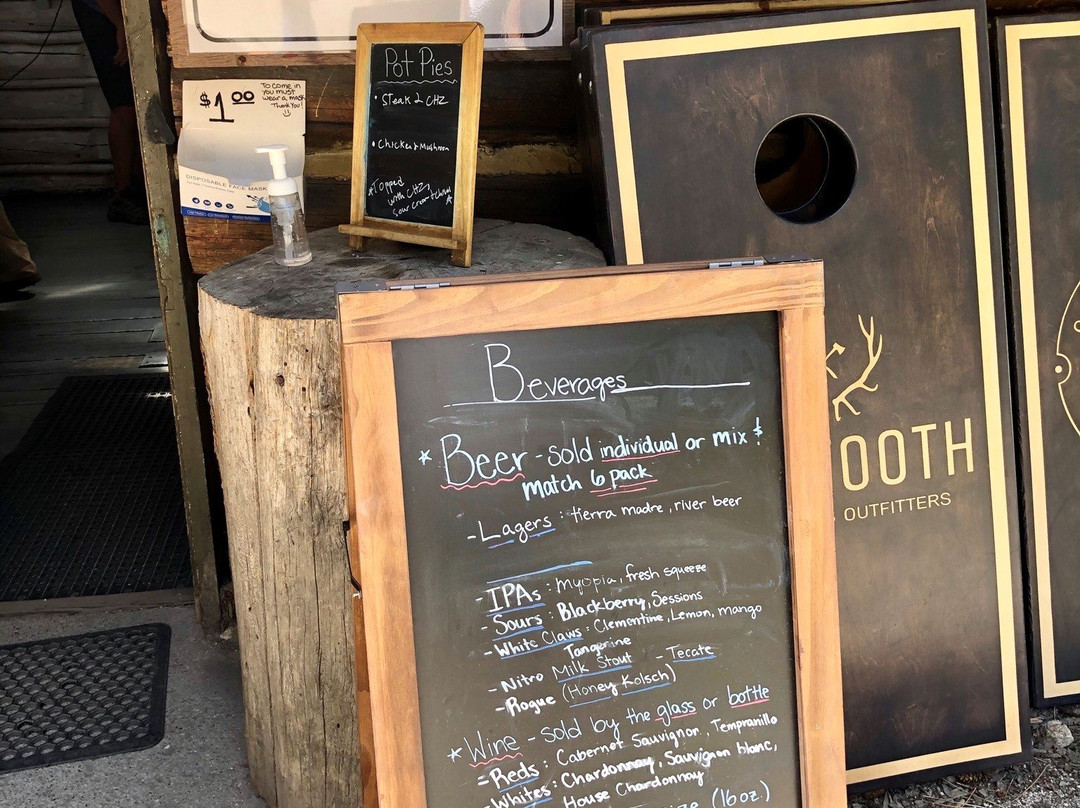 $1.00
To come in
you must
wear a mask
Thank You!
DISPOSABLE FACE MASK
Pot Pies
• Steak & CHZ
• Chicken & Mushroom
*Topped
with CHZ,
Sour Cream & Chives*
OOTH
OUTFITTERS
Beverages
* Beer - sold individual or mix &
match 6 pack
- Lagers : tierra madre, river beer
- IPAs : Myopia, fresh squeeze
- Sours : Blackberry, Sessions
- White Claws : Clementine, Lemon, mango
Tangerine
- Nitro Milk Stout - Tecate
- Rogue (Honey Kolsch)
* Wine - sold by the glass or bottle
- Reds : Cabernet Sauvignon, Tempranillo
- Whites : Chardonnay, Sauvignon blanc,
House Chardonnay
(16oz.)